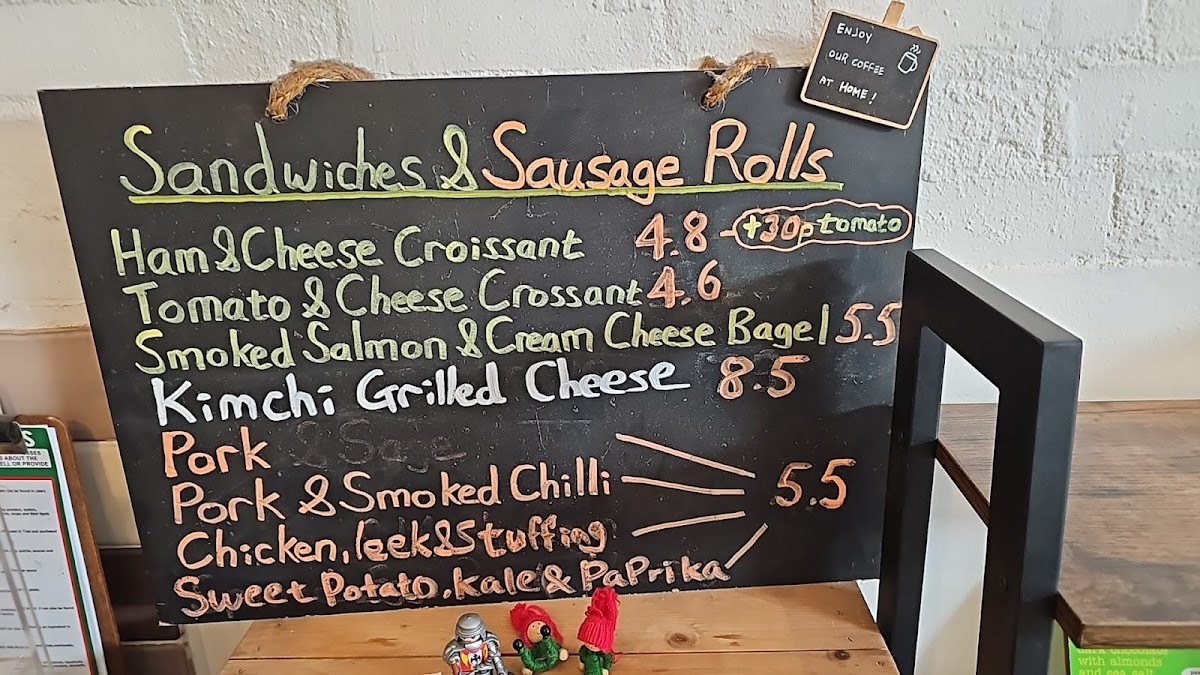 ENJOY
OUR COFFEE
AT HOME!
Sandwiches & Sausage Rolls
Ham & Cheese Croissant 4.8 - +30p tomato
Tomato & Cheese Crossant 4.6
Smoked Salmon & Cream Cheese Bagel 5.5
Kimchi Grilled Cheese 8.5
Pork & Sage
Pork & Smoked Chilli 5.5
Chicken, leek & Stuffing
Sweet Potato, kale & PaPrika
S
ABOUT THE
ELL OR PROVIDE
dark chocolate
with almonds
and sea salt